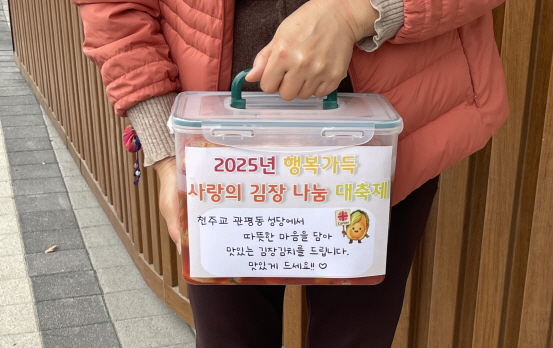 2025년 행복가득
사랑의 김장 나눔 대축제
천주교 관평동 성당에서
따뜻한 마음을 담아
맛있는 김장김치를 드립니다.
맛있게 드세요!! ♡